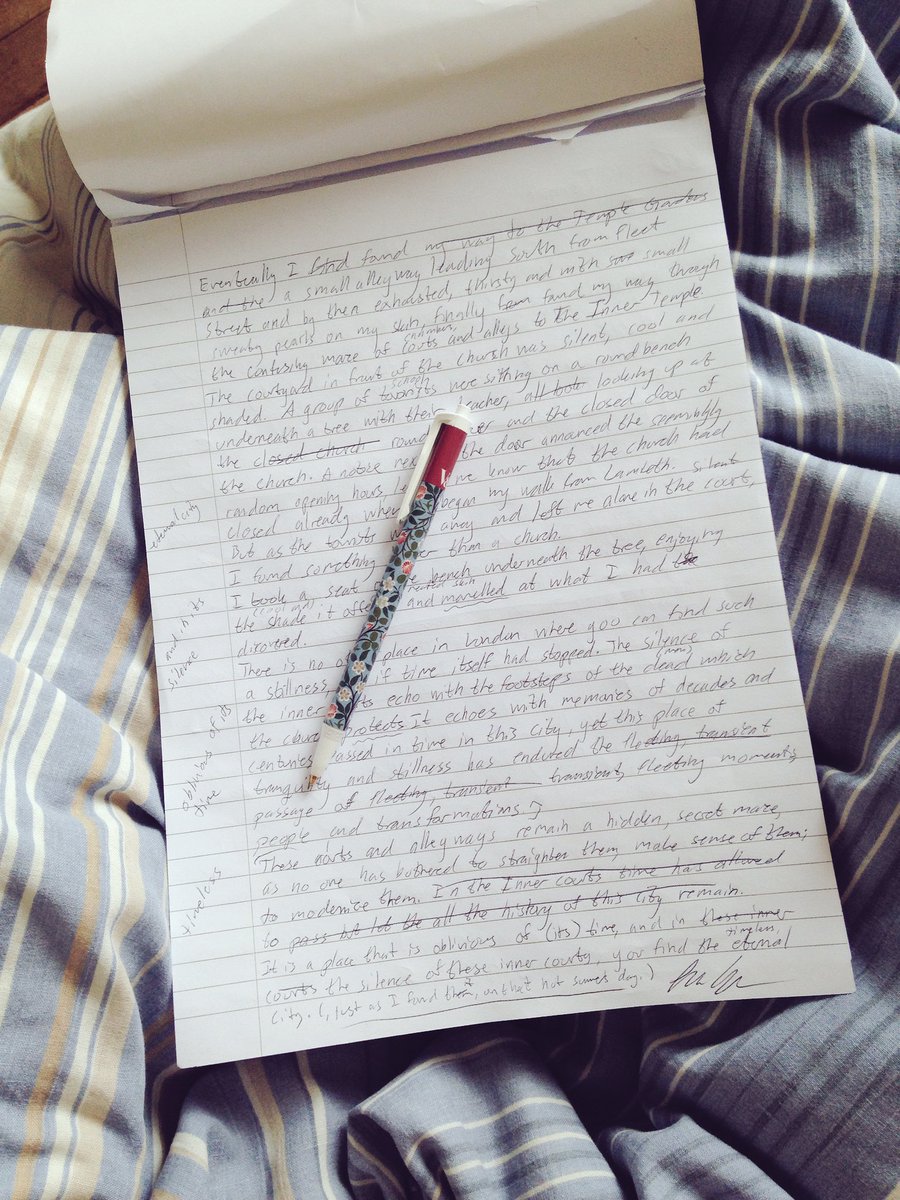 Eventually I find found my way to the Temple Gardens
and the a small alleyway leading South from Fleet
street and by then exhausted, thirsty and with small
sweaty pearls on my skin, finally found my way through
the confusing maze of courts and alleys to the Inner Temple.
The courtyard in front of the church was silent, cool and
shaded. A group of school tourists were sitting on a round bench
underneath a tree with their teacher, all looking up at
the closed church round and the closed door of
the church. A notice the door announced the
random opening hours, know that the church had
closed already when began my walk from Lambeth.
But as the tourists away and left me alone in the silent court,
I found something than a church.
I took a seat bench underneath the tree, enjoying
the shade it and marvelled at what I had
discovered.
There is no place in London where you can find such
a stillness if time itself had stopped. The silence of
the inner echo with the footsteps of the dead which
the church protects. It echoes with memories of decades and
centuries passed in time in this city, yet this place of
tranquility and stillness has endured the fleeting, transient
passage of fleeting, transient transient, fleeting moments,
people and transformations.]
These courts and alleyways remain a hidden, secret maze,
as no one has bothered to straighten them, make sense of them;
to modernize them. In the Inner courts time has allowed
to pass but let the all the history of this city remain.
It is a place that is oblivious of (its) time, and in those inner
courts the silence of these inner courts, you find the timeless, eternal
city. (, just as I found on that hot summer's day.)
eternal city
and in its
silence
oblivious of its
time
timeless